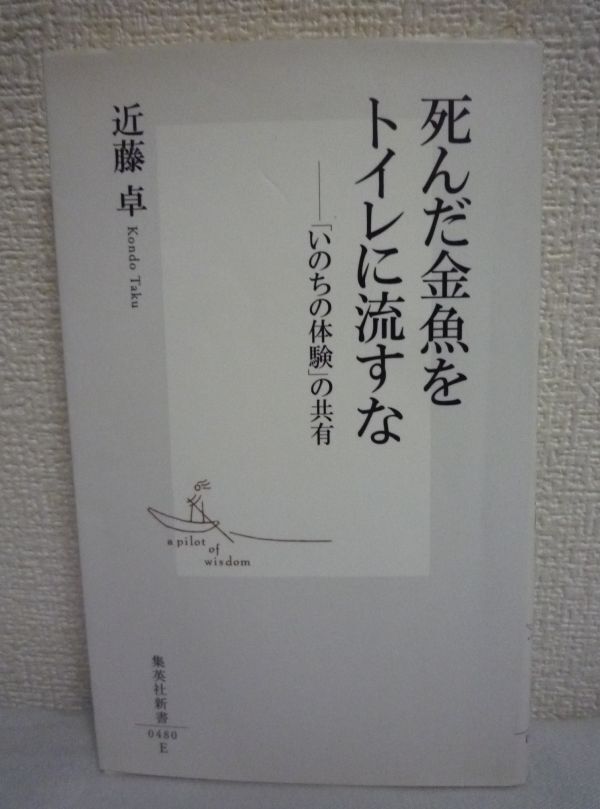 死んだ金魚を
トイレに流すな
――「いのちの体験」の共有
近藤 卓
Kondo Taku
a pilot
of
wisdom
集英社新書
0480
E